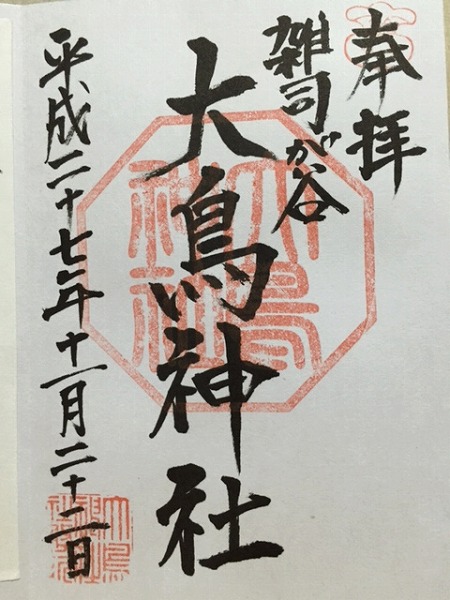 奉拝
雑司が谷
大鳥神社
平成二十七年十一月二十二日
大鳥神社